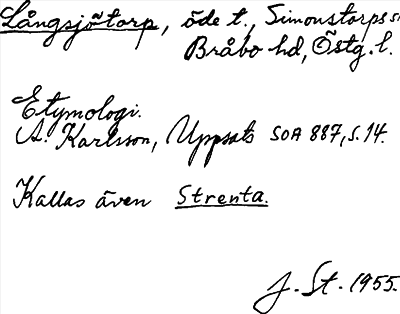 Långsjötorp, öde t., Simonstorps s
Bråbo hd, Östg. l.
Etymologi.
A. Karlsson, Uppsats SOA 887, s. 14.
Kallas även Strenta.
J. St. 1955.